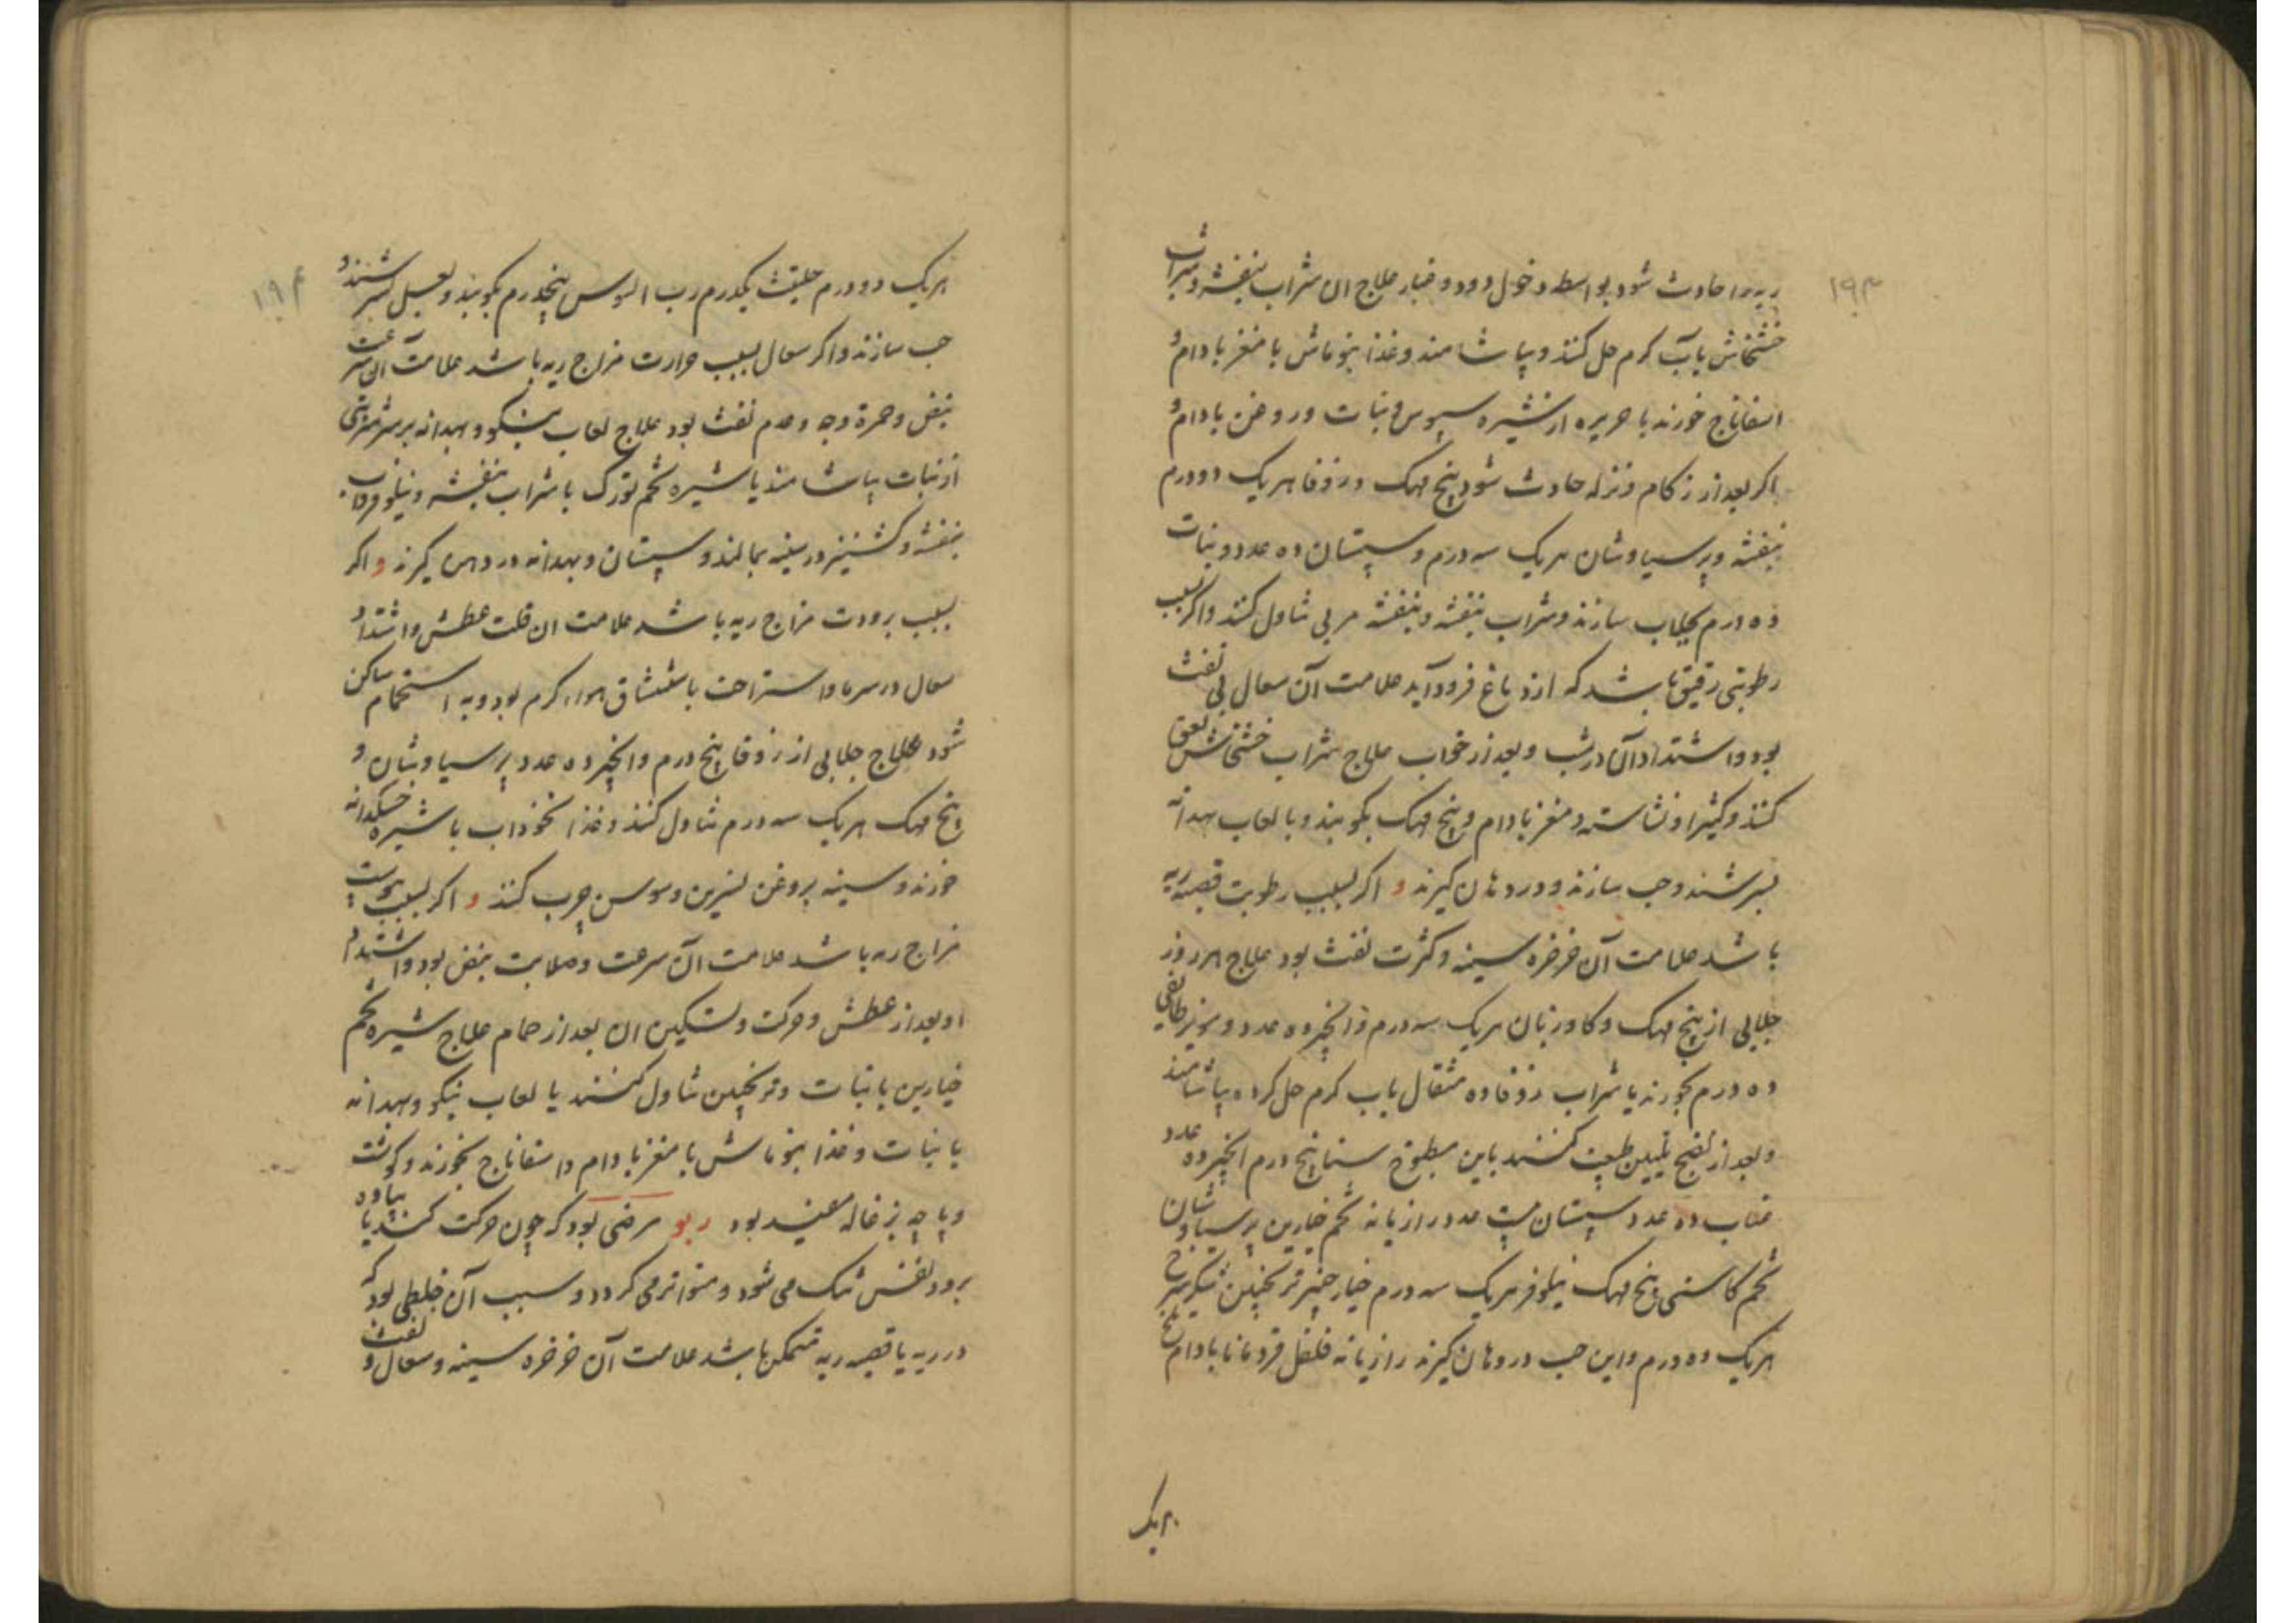 ۱۹۳
ریه را حادث شود بواسطه دخول دود و غبار علاج ان شراب بنفشه و شراب
خشخاش بآب کرم حل کنند و بیاشامند و غذا بنوماش با مغز بادام و
اسفاناج خورند با حریره از نشیره سبوس و نبات و روغن بادام و
اکر بعد از زکام و نزله حادث شود بنج مهک و زوفا هریک دو درم
بنفشه و پرسیاوشان هریک سه درم و سپستان ده عدد و نبات
ده درم بجلاب سازند و شراب بنفشه و بنفشه مربی تناول کنند و اکر بسبب
رطوبتی رقیق باشد که از دماغ فرود آید علامت آن سعال بی نفث
بود و اشتداد آن در شب و بعد از خواب علاج شراب خشخاش لعق
کنند و کثیرا و نشاسته و مغز بادام و بنج مهک بکوبند و با لعاب بهدانه
بسرشند و حب سازند و در دهان کیرند و اکر بسبب رطوبت قصبه ریه
باشد علامت آن خرخره سینه و کثرت نفث بود علاج هر روز
جلابی از بنج مهک و کاوزبان هریک سه درم و انجیر ده عدد و مویز طایفی
ده درم بخورند یا شراب زوفا ده مثقال بآب کرم حل کرده بیاشامند
و بعد از نضج تلیین طبیعت کنند باین مطبوخ سنا بنج درم انجیر ده عدد
عناب ده عدد سپستان بیست عدد رازیانه تخم خیارین پرسیاوشان
تخم کاسنی بنج مهک نیلوفر هریک سه درم خیارچنبر ترنجبین شکر سرخ
هریک ده درم و این حب در دهان کیرند رازیانه فلفل قردمانا بادام تلخ
هریک
۱۹۴
هریک دو درم حلتیت یکدرم رب السوس پنجدرم بکوبند و بعسل بسرشند و
حب سازند و اکر سعال بسبب حرارت مزاج ریه باشد علامت آن سرعت
نبض و حمرة وجه و عدم نفث بود علاج لعاب بنکو و بهدانه بر سر شربتی
از نبات بیاشامند یا شیره تخم تورک با شراب بنفشه و نیلوفر و آب
بنفشه و کشنیز در سینه بمالند و سپستان و بهدانه در دهن کیرند و اکر
بسبب برودت مزاج ریه باشد علامت ان قلت عطش و اشتداد
سعال در سرما و استراحت باستنشاق هواء کرم بود و به استحمام ساکن
شود علاج جلابی از زوفا پنج درم و انجیر ده عدد پرسیاوشان و
بنج مهک هریک سه درم تناول کنند و غذا نخوداب با شیره خسکدانه
خورند و سینه بروغن نسرین و سوسن چرب کنند و اکر بسبب یبوست
مزاج ریه باشد علامت آن سرعت و صلابت نبض بود و اشتداد
او بعد از عطش و حرکت و تسکین ان بعد از حمام علاج شیره تخم
خیارین با نبات و ترنجبین تناول کنند یا لعاب بنکو و بهدانه
با نبات و غذا بنوماش با مغز بادام و اسفاناج بخورند و کوشت
و پاچه بزغاله مفید بود ربو مرضی بود که چون حرکت کنند یا پیاده
برود نفس تنک می شود و متواتر می کردد و سبب آن خلطی بود که
در ریه یا قصبه ریه متمکن باشد علامت آن خرخره سینه و سعال و نفث